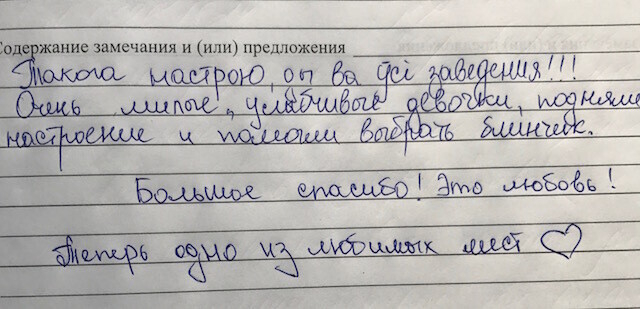 Содержание замечания и (или) предложения
Такога настрою, ды ва ўсі заведения!!!
Очень милые, улыбчивые девочки, подняли
настроение и помогли выбрать блинчик.
Большое спасибо! Это любовь!
Теперь одно из любимых мест ♡